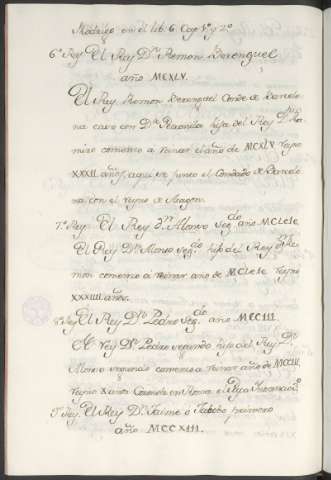 Madrigo en el lib. 6 Cap 1º y 2º
6º Rey El Rey Dn Remon Berenguel
año MCXLV.
El Rey Remon Berenguel Conde de Barcelo
na caso con Dª Peronila hija del Rey Dn Ra
miro comenso a reinar el año de MCXLV reyno
XXXII años, aqui se junto el Condado de Barcelo
na con el reyno de Aragon.
7º Rey. El Rey Dn Alonso Segdo año
El Rey Dn Alonso Segdo hijo del Rey Dn Re
mon comenso a reinar año de reyno
XXXIIII años.
8º Rey El Rey Dn Pedro Segdo año MCCIII.
El Rey Dn Pedro segundo hijo del Rey Dn
Alonso segundo comenso a reinar año de
Reyno Coronole en Roma el Papa Inocencio
9º Rey. El Rey Dn Jaime o Jacobo primero
año MCCXIII.